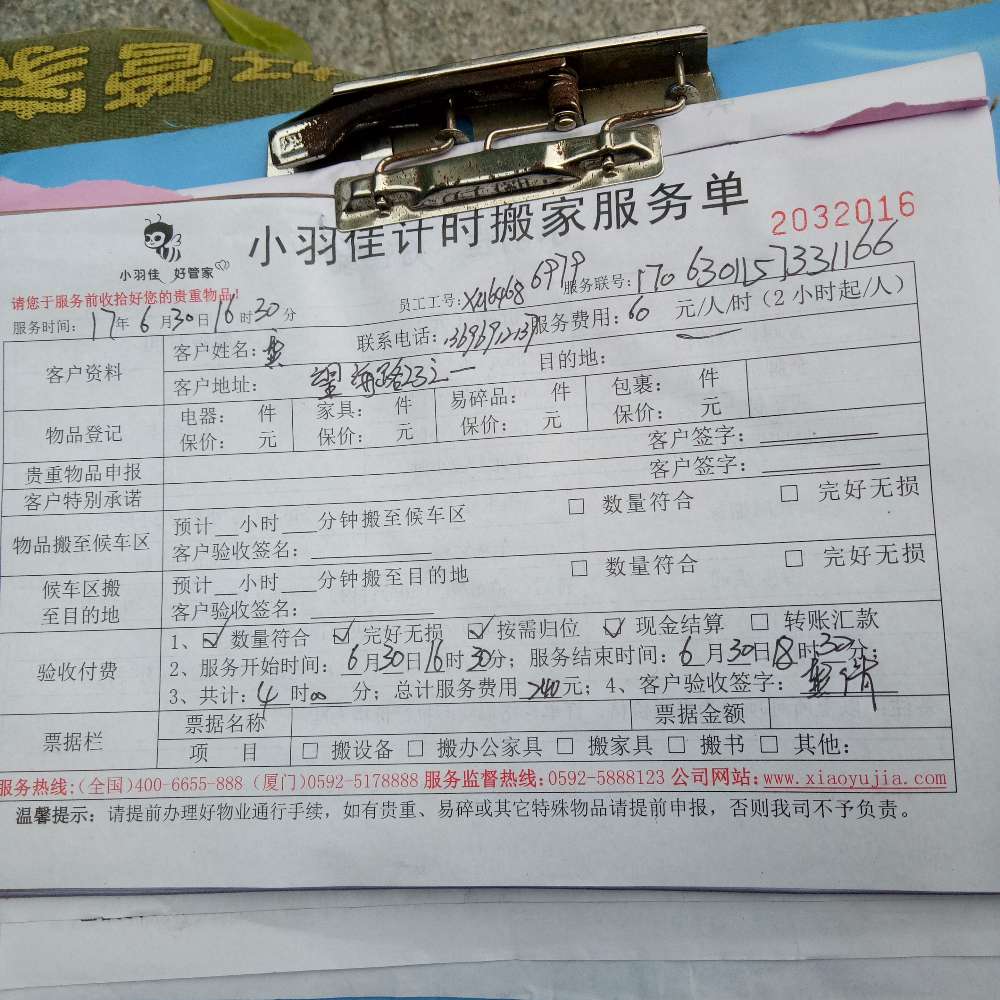 小羽佳计时搬家服务单
2032016
小羽佳 好管家
请您于服务前收拾好您的贵重物品!
员工工号: 6979 服务联号:1706301157331166
服务时间: 17年 6 月 30 日 16 时 30 分 联系电话: 服务费用: 60 元/人/时 (2 小时起/人)
客户资料 客户姓名:
客户地址: 望海路23之一 目的地:
物品登记 电器: 件 家具: 件 易碎品: 件 包裹: 件
保价: 元 保价: 元 保价: 元 保价: 元
客户签字:
贵重物品申报 客户签字:
客户特别承诺
物品搬至候车区 预计__小时____分钟搬至候车区 □ 数量符合 □ 完好无损
客户验收签名:
候车区搬至目的地 预计__小时____分钟搬至目的地 □ 数量符合 □ 完好无损
客户验收签名:
验收付费 1、☑ 数量符合 ☑ 完好无损 ☑ 按需归位 ☑ 现金结算 □ 转账汇款
2、服务开始时间: 6 月 30 日 16 时 30 分; 服务结束时间: 6 月 30 日 18 时 30 分;
3、共计: 4 时 00 分; 总计服务费用 240 元; 4、客户验收签字:
票据栏 票据名称 票据金额
项 目 □ 搬设备 □ 搬办公家具 □ 搬家具 □ 搬书 □ 其他:
服务热线:(全国)400-6655-888 (厦门)0592-5178888 服务监督热线:0592-5888123 公司网站:www.xiaoyujia.com
温馨提示: 请提前办理好物业通行手续, 如有贵重、易碎或其它特殊物品请提前申报, 否则我司不予负责。